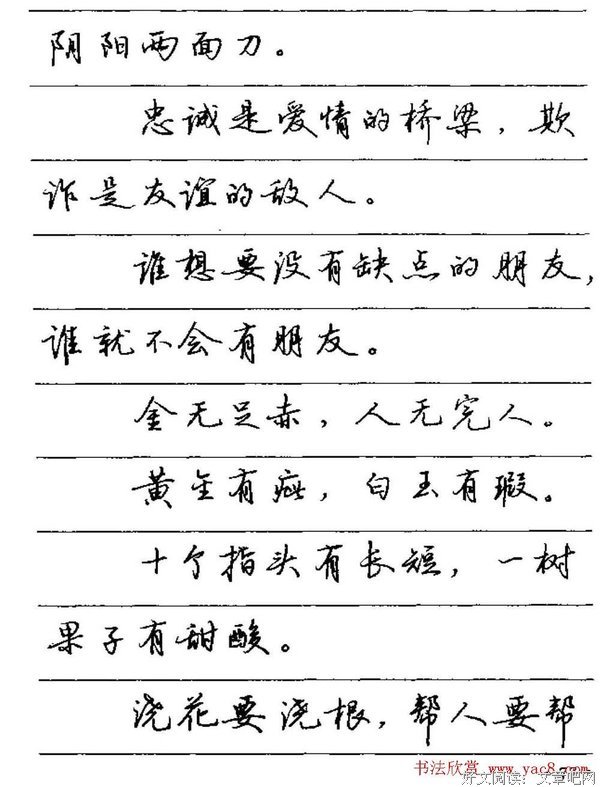 阴阳两面刀。
忠诚是爱情的桥梁，欺
诈是友谊的敌人。
谁想要没有缺点的朋友，
谁就不会有朋友。
金无足赤，人无完人。
黄金有疵，白玉有瑕。
十个指头有长短，一树
果子有甜酸。
浇花要浇根，帮人要帮
书法欣赏 www.yac8.com
好文阅读：文章吧网